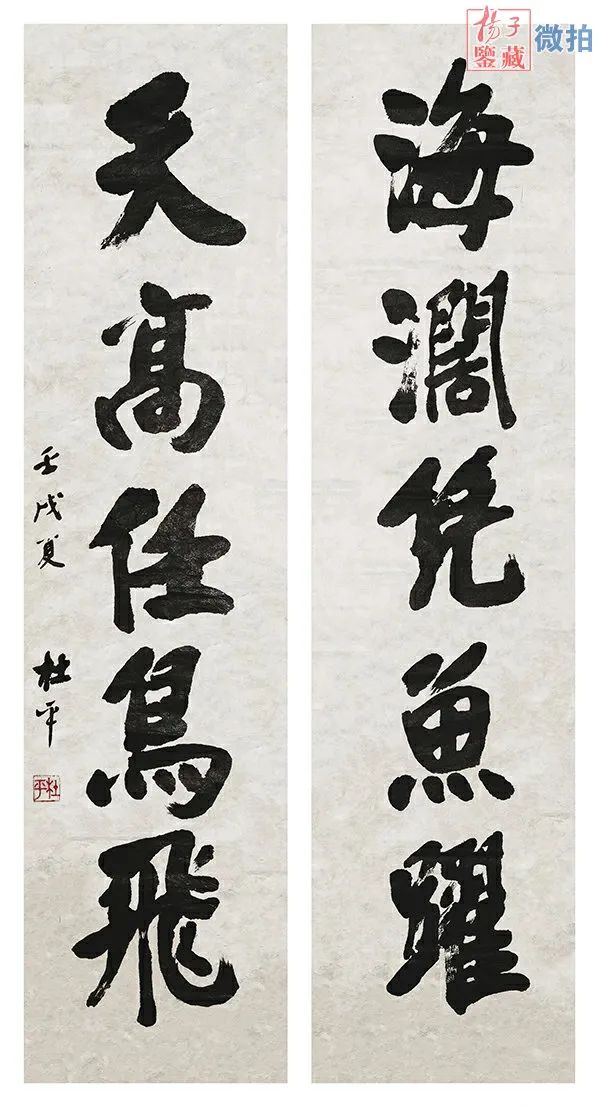 海濶凭魚躍
天高任鳥飛
壬戌夏
杜平
杜平
揚子
鑒藏
微拍